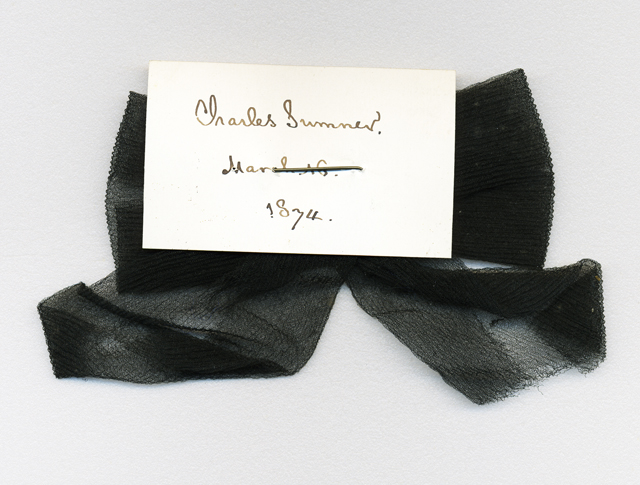 Charles Sumner.
March 16.
1874.